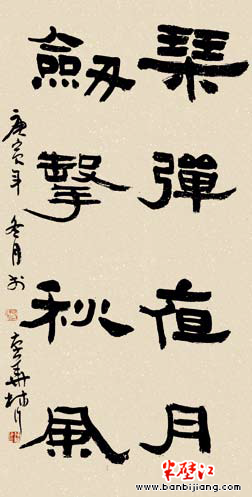 琹彈夜月
劔擊秋風
庚寅年冬月於
半壁江
www.banbijiang.com